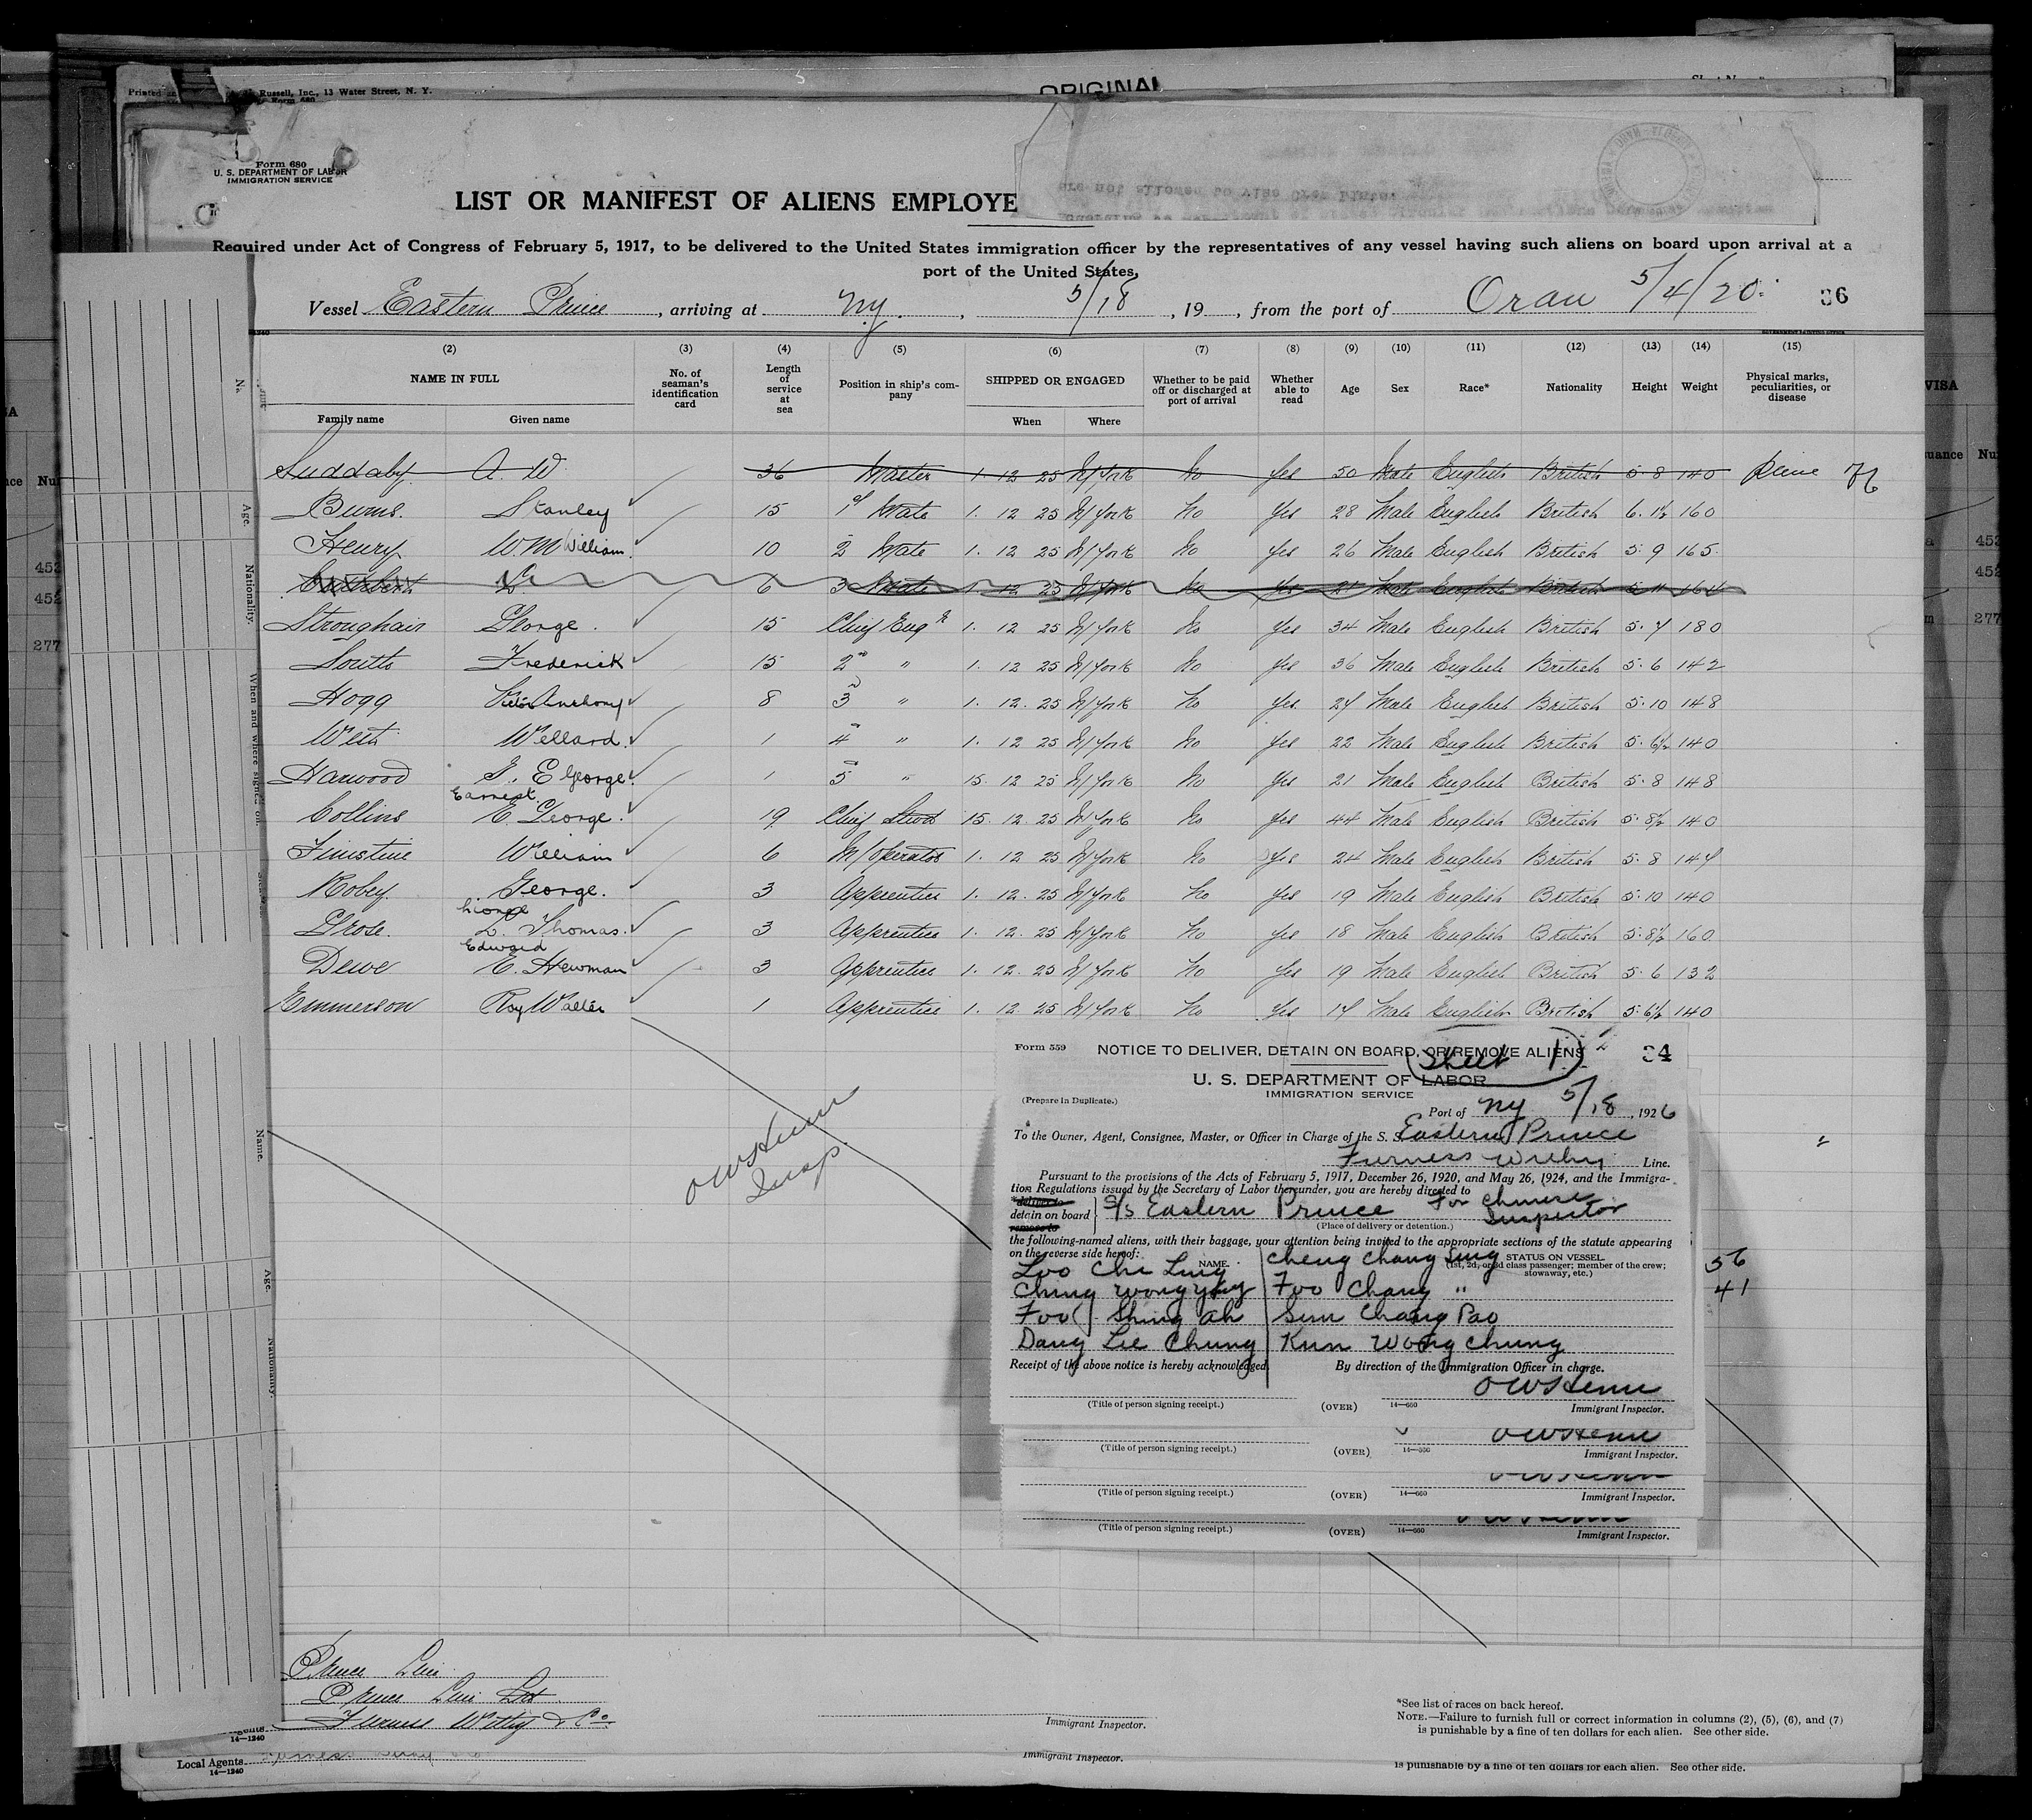 Printed
Russell, Inc., 13 Water Street, N. Y.
Form 680
5
ORIGINAL
Form 680
U. S. DEPARTMENT OF LABOR
IMMIGRATION SERVICE
LIST OR MANIFEST OF ALIENS EMPLOYE
Required under Act of Congress of February 5, 1917, to be delivered to the United States immigration officer by the representatives of any vessel having such aliens on board upon arrival at a
port of the United States,
Vessel Eastern Prince, arriving at NY., 5/18, 19, from the port of Oran 5/4/20. 36
(2) (3) (4) (5) (6) (7) (8) (9) (10) (11) (12) (13) (14) (15)
NAME IN FULL
Family name Given name
No. of seaman's identification card
Length of service at sea
Position in ship's company
SHIPPED OR ENGAGED
When Where
Whether to be paid off or discharged at port of arrival
Whether able to read
Age Sex Race* Nationality Height Weight
Physical marks, peculiarities, or disease
Suddaby A W 36 Master 1. 12 25 N/York No Yes 50 Male English British 5.8 140
Burns. Stanley 15 1st Mate 1. 12 25 N/York No Yes 28 Male English British 6. 1½ 160
Henry W.M William 10 2 Mate 1. 12 25 N/York No Yes 26 Male English British 5. 9 165
6 3 Mate 1 12 25 N/York No Yes 21 Male English British 5 11 164
Stroughair George. 15 Chief Engr 1. 12 25 N/York No Yes 34 Male English British 5. 7 180
Frederick 15 2nd " 1. 12 25 N/York No Yes 36 Male English British 5. 6 142
Hogg Anthony 8 3 " 1. 12. 25 N/York No Yes. 27 Male English British 5. 10 148
West Wellard. 1 4 " 1. 12. 25 N/York No Yes 22 Male English British 5. 6½ 140
Harwood E George. 1 5 " 15. 12 25 N/York No Yes 21 Male English British 5. 8 148
Earnest
Collins E. George. 19 Chief Stwd 15. 12. 25 N/York No Yes 44 Male English British 5. 8½ 140
William 6 W/Operator 1. 12. 25 N/York No Yes 24 Male English British 5. 8 147
Robey. George. 3 Apprentice 1. 12. 25 N/York No Yes 19 Male English British 5. 10 140
Lionel
Grose. L. Thomas. 3 Apprentice 1. 12. 25 N/York No Yes 18 Male English British 5. 8½ 160
Edward
Dewe E. Newman 3 Apprentice 1. 12. 25 N/York No Yes 19 Male English British 5. 6 132
Emmerson Roy Walter 1 Apprentice 1. 12. 25 N/York No Yes 17 Male English British 5. 6½ 140
OWHenn
Insp.
Form 559
NOTICE TO DELIVER, DETAIN ON BOARD, OR REMOVE ALIENS
Sheet 1 34
U. S. DEPARTMENT OF LABOR
IMMIGRATION SERVICE
(Prepare in Duplicate.)
Port of NY 5/18, 1926
To the Owner, Agent, Consignee, Master, or Officer in Charge of the S. S. Eastern Prince
Furness Withy Line.
Pursuant to the provisions of the Acts of February 5, 1917, December 26, 1920, and May 26, 1924, and the Immigra-
tion Regulations issued by the Secretary of Labor thereunder, you are hereby directed to
*deliver to
detain on board S/S Eastern Prince For Chinese Inspector
remove to
(Place of delivery or detention.)
the following-named aliens, with their baggage, your attention being invited to the appropriate sections of the statute appearing
on the reverse side hereof:
NAME. STATUS ON VESSEL.
(1st, 2d, or 3d class passenger; member of the crew; stowaway, etc.)
Loo Chi Ling Cheng Chang Sing 56
Ching Wong Foo Chang " 41
Foo Shing Ah Sun Chang Pao
Dang Lee Chung Kun Wong Chung
Receipt of the above notice is hereby acknowledged. By direction of the Immigration Officer in charge.
OWHenn
(Title of person signing receipt.) (OVER) 14—660 Immigrant Inspector.
OWHenn
(Title of person signing receipt.) (OVER) 14—660 Immigrant Inspector.
(Title of person signing receipt.) (OVER) 14—660 Immigrant Inspector.
(Title of person signing receipt.) (OVER) 14—660 Immigrant Inspector.
Prince Line
Prince Line Ltd
Furness Withy & Co
14—1240
Immigrant Inspector.
*See list of races on back hereof.
NOTE.—Failure to furnish full or correct information in columns (2), (5), (6), and (7)
is punishable by a fine of ten dollars for each alien. See other side.
Local Agents
14—1240
Immigrant Inspector.
is punishable by a fine of ten dollars for each alien. See other side.
Age.
Nationality.
When and where signed on.
Name.
Age.
Nationality.
VISA
453
452
277